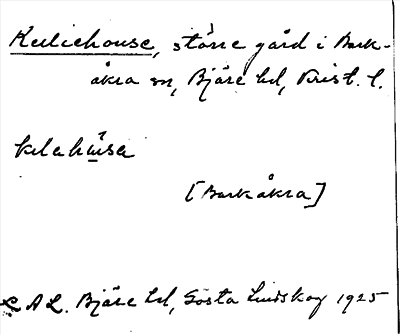 Keliehouse, större gård i Bark-
åkra sn, Bjäre hd, Krist. l.
kelahúsa
[Barkåkra]
L A L. Bjäre hd, Gösta Lindskog 1925